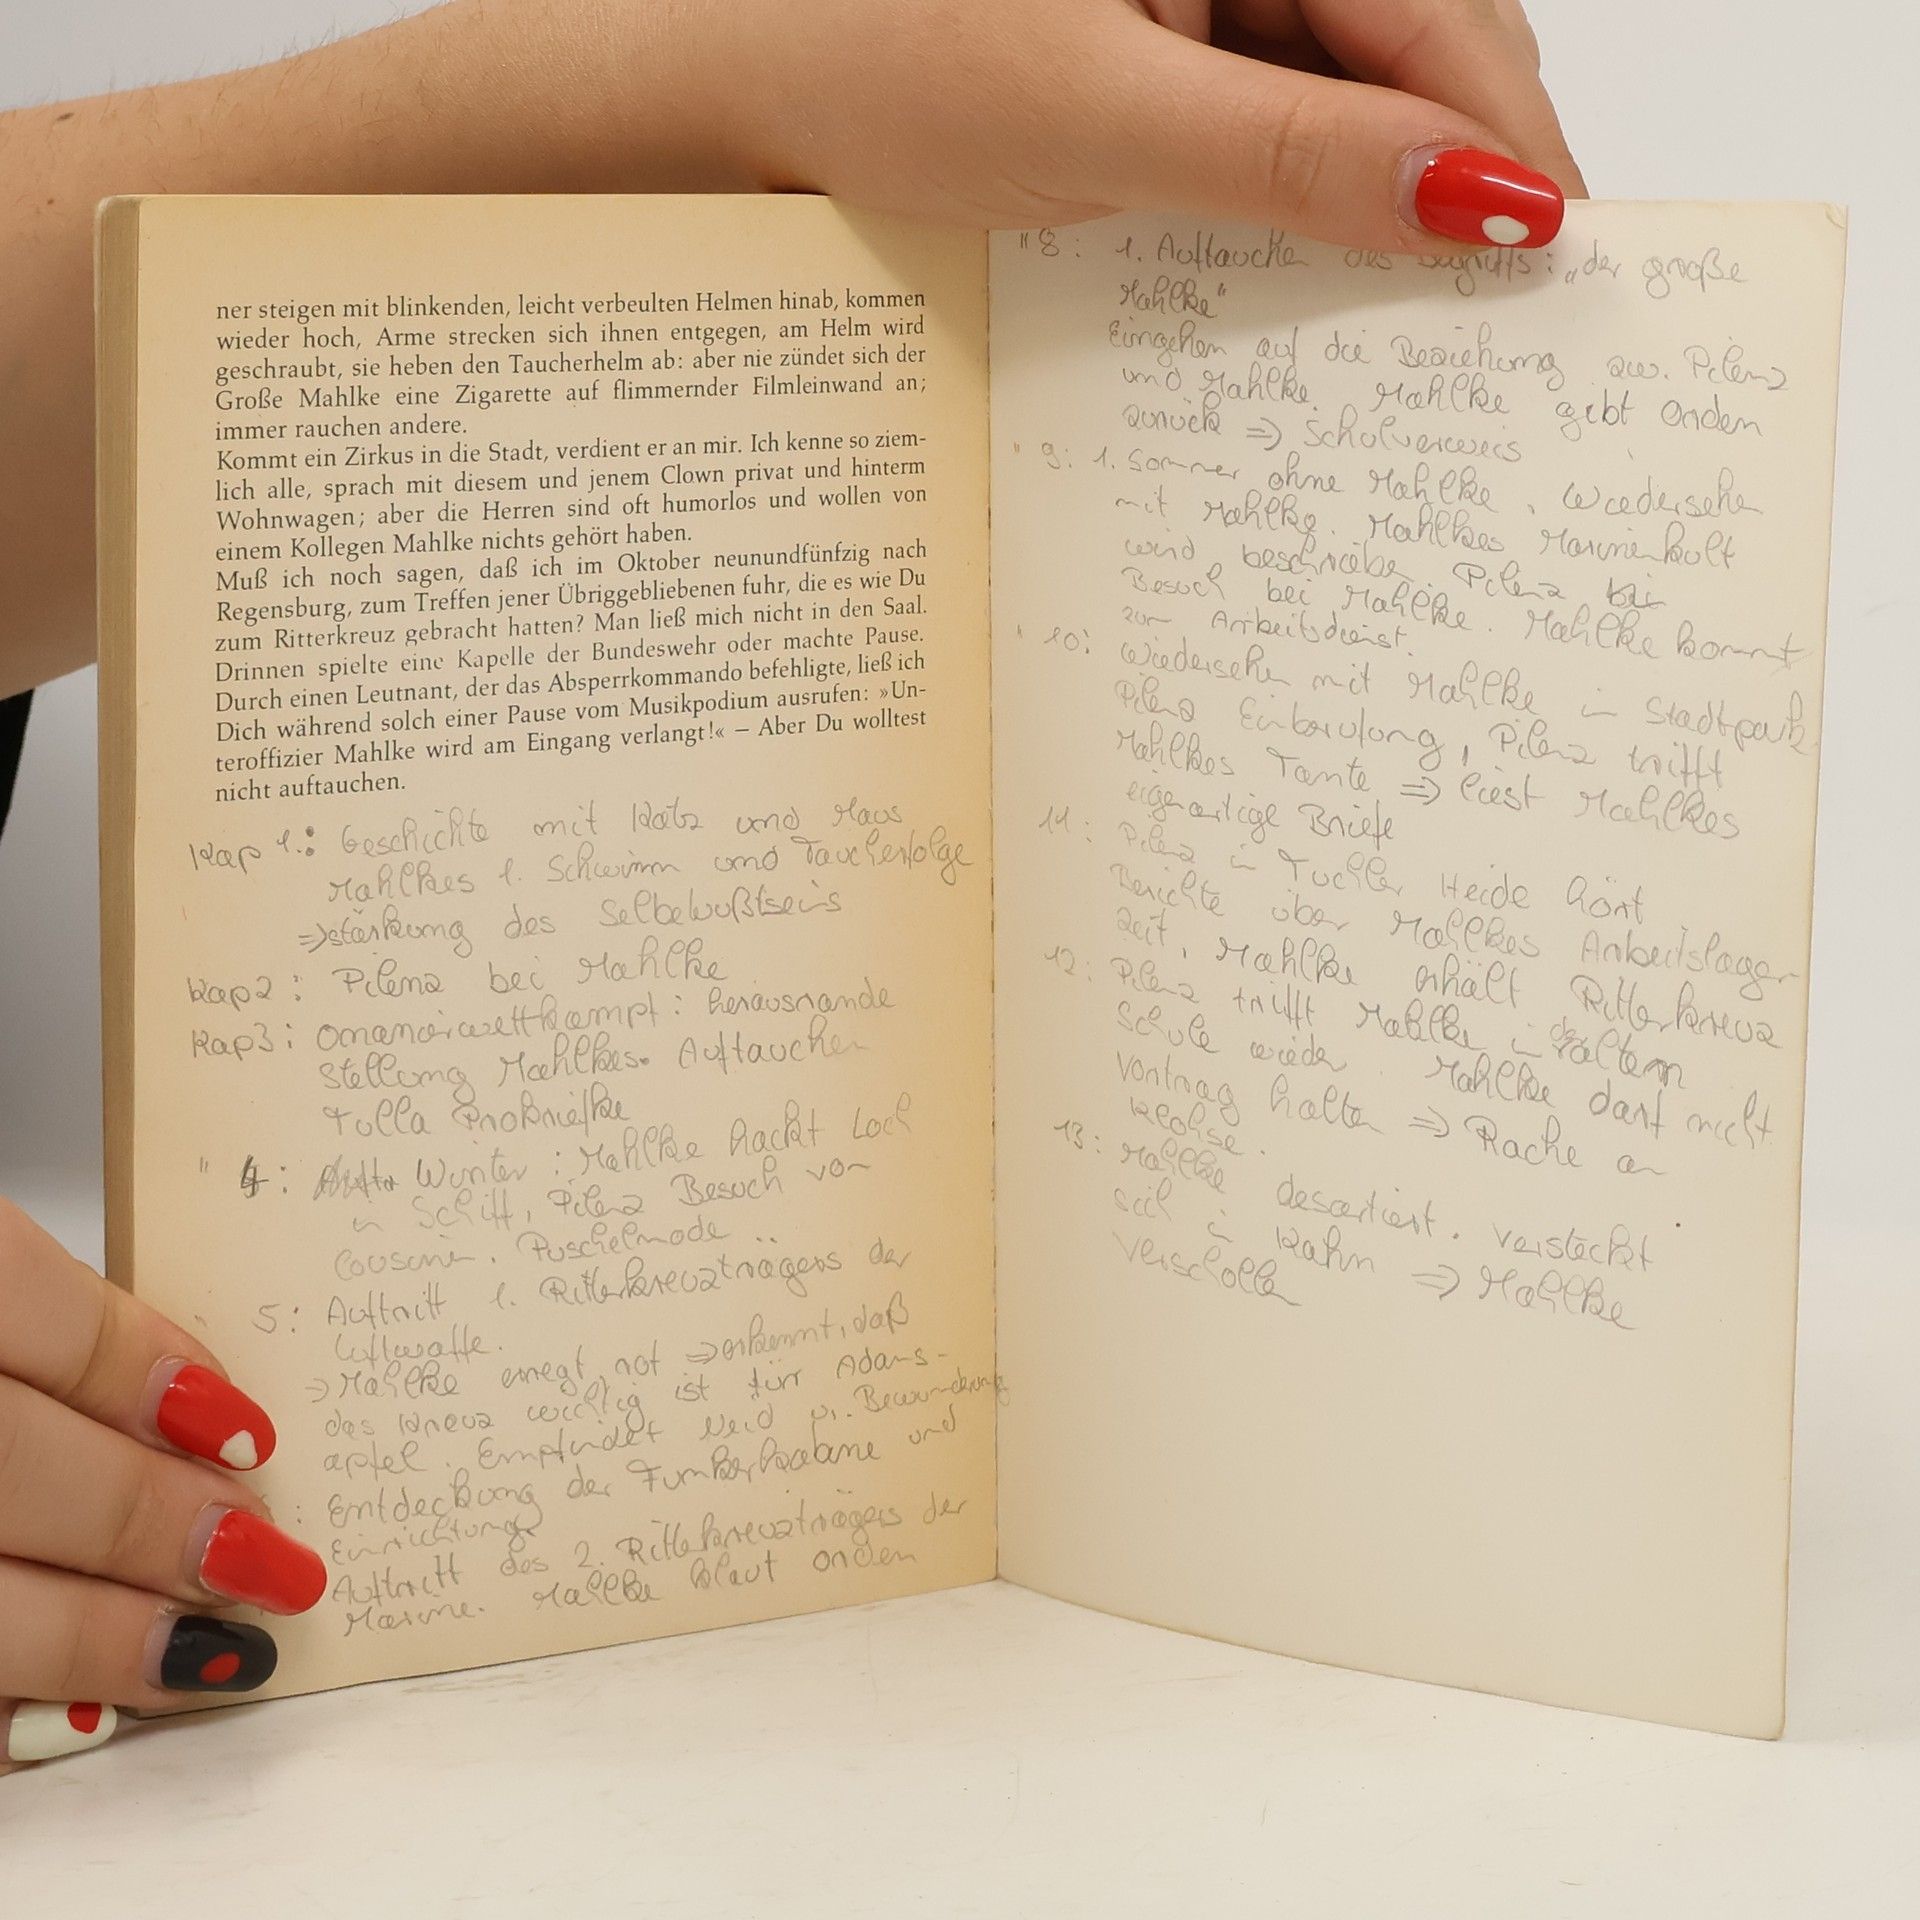 ner steigen mit blinkenden, leicht verbeulten Helmen hinab, kommen
wieder hoch, Arme strecken sich ihnen entgegen, am Helm wird
geschraubt, sie heben den Taucherhelm ab: aber nie zündet sich der
Große Mahlke eine Zigarette auf flimmernder Filmleinwand an;
immer rauchen andere.
Kommt ein Zirkus in die Stadt, verdient er an mir. Ich kenne so ziem-
lich alle, sprach mit diesem und jenem Clown privat und hinterm
Wohnwagen; aber die Herren sind oft humorlos und wollen von
einem Kollegen Mahlke nichts gehört haben.
Muß ich noch sagen, daß ich im Oktober neunundfünfzig nach
Regensburg, zum Treffen jener Übriggebliebenen fuhr, die es wie Du
zum Ritterkreuz gebracht hatten? Man ließ mich nicht in den Saal.
Drinnen spielte eine Kapelle der Bundeswehr oder machte Pause.
Durch einen Leutnant, der das Absperrkommando befehligte, ließ ich
Dich während solch einer Pause vom Musikpodium ausrufen: »Un-
teroffizier Mahlke wird am Eingang verlangt!« – Aber Du wolltest
nicht auftauchen.
Kap 1.: Geschichte mit Katz und Maus
Mahlkes 1. Schwimm und Taucherfolge
=> stärkung des Selbewußtseins
Kap2: Pilenz bei Mahlke
Kap3: onanierwettkampf: herausragende
Stellung Mahlkes. Auftauchen
Tulla Prokriefke
" 4: Winter: Mahlke hackt Loch
in Schiff, Pilenz Besuch von
Cousine. Puschelmode
" 5: Auftritt 1. Ritterkreuzträgers der
Luftwaffe.
=> Mahlke erregt rot => erkennt, daß
das Kreuz wichtig ist für Adams-
apfel. Empfindet Neid u. Bewunderung
: Entdeckung der Funkerkabine und
Einrichtung.
Auftritt des 2. Ritterkreuzträgers der
Marine. Mahlke klaut orden
" 8: 1. Auftauchen des Begriffs: „der große
Mahlke"
Eingehen auf die Beziehung zw. Pilenz
und Mahlke. Mahlke gibt orden
zurück => Schulverweis
" 9: 1. Sommer ohne Mahlke. Wiedersehen
mit Mahlke. Mahlkes Marienkult
wird beschrieben. Pilenz
Besuch bei Mahlke. Mahlke kommt
zum Arbeitsdienst.
" 10: Wiedersehen mit Mahlke in Stadtpark
Pilenz Einberufung, Pilenz trifft
Mahlkes Tante => liest Mahlkes
eigenartige Briefe
11: Pilenz in Tuchler Heide hört
Berichte über Mahlkes Arbeitslager
zeit. Mahlke erhält Ritterkreuz
12: Pilenz trifft Mahlke in der altern
Schule wieder. Mahlke darf nicht
Vortrag halten => Rache an
Klohse.
13: Mahlke desertiert. versteckt
sich in Kahn => Mahlke
verschollen